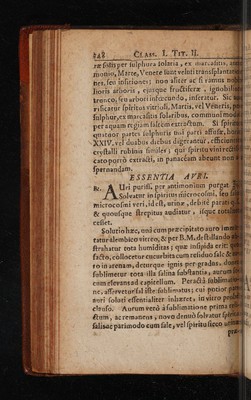 248 CLASS. I. TIT. II.
sæ fistis per sulphura solaria, ex marcasitis, anti
monio, Marte, Venere sunt veluti transplantatio
nes, seu insitiones: non aliter ac si ramus nobi
lioris arboris, ejusque fructiferæ, ignobiliori
trunco, seu arbori infœcundo, inseratur. Sic
ricatur spiritus vitrioli, Martis, vel Veneris, per
sulphur, ex marcasitis solaribus, communi modo
per aquam regiam
quatuor partes sulphuris
XXIV. vel duabus diebus digerantur,
crystalli rubini similes; qui spiritu vini
cato porrò extracti, in panaceam abeunt non
spernandam.
ESSENTIA AURI.
℞. AUri purissi. per antimonium purgat.
Solvatur in spiritu microcosmi, seu
microcosmi veri, id est, urinæ, debitè parati
& quousque strepitus auditur, isque totaliter
cesset.
Solutio hæc, unà cum præcipitato auro immit
tatur alembico vitreo, & per B. M. destillando
struhatur tota humiditas; quæ insipida erit: quo
facto, collocetur cucurbita cum residuo sale & au
ro in arenam, deturque ignis per gradus, donec
sublimetur tota illa salina substantia, aurum se
cum elevans ad capitellum. Peractâ sublimatio
ne, asservetur sal iste sublimatus; cui potior pars
auri soluti essentialiter inhæret, in vitro probè
clauso. Aurum verò à sublimatione prima
ctum, ac remanens, novo denuò solvatur spiritu
salis ac parimodo cum sale, vel spiritu sicco urinæ
præ-